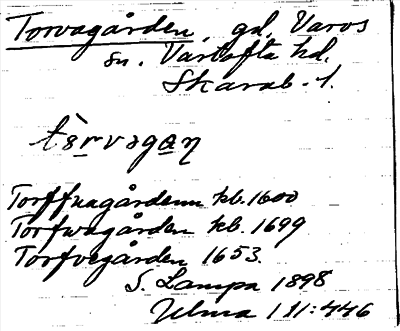 Torvagården, gd. Varvs
sn. Vartofta hd.
Skarab. l.
tòrvəgan
Torffuagårdenn kb. 1600
Torfwagården kb. 1699
Torfvegården 1653.
S. Lampa 1898
Ulma 111:446